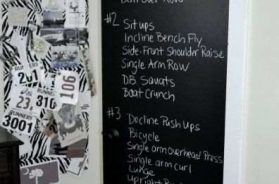 Bent Over Row
#2 Situps
Incline Bench Fly
Side-Front Shoulder Raise
Single Arm Row
DB Squats
Boat Crunch
#3 Decline Push Ups
Bicycle
Single arm overhead Press
Single arm curl
Lunge
Upright Row
201
106
23
1930
3001